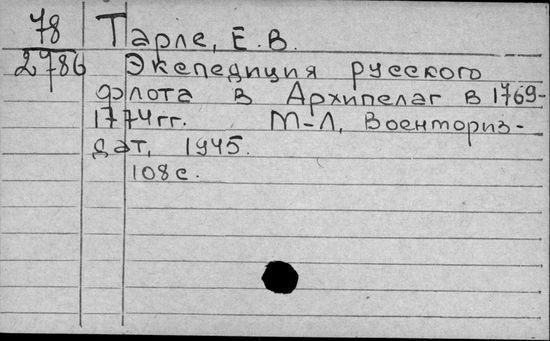 78 Тарле, Е. В.
2786 Экспедиция русского
флота в Архипелаг в 1769-
1774 гг. М-Л, Военмориз-
дат, 1945.
108 с.